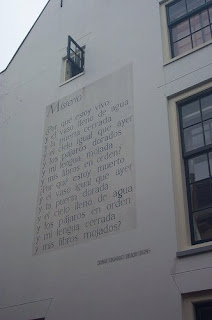 Misterio
¿Por qué estoy vivo
y el vaso lleno de agua
y la puerta cerrada
y el cielo igual que ayer
y los pájaros dorados
y mi lengua mojada
y mis libros en orden?
¿Por qué estoy muerto
y el vaso igual que ayer
y la puerta dorada
y el cielo lleno de agua
y los pájaros en orden
y mi lengua cerrada
y mis libros mojados?